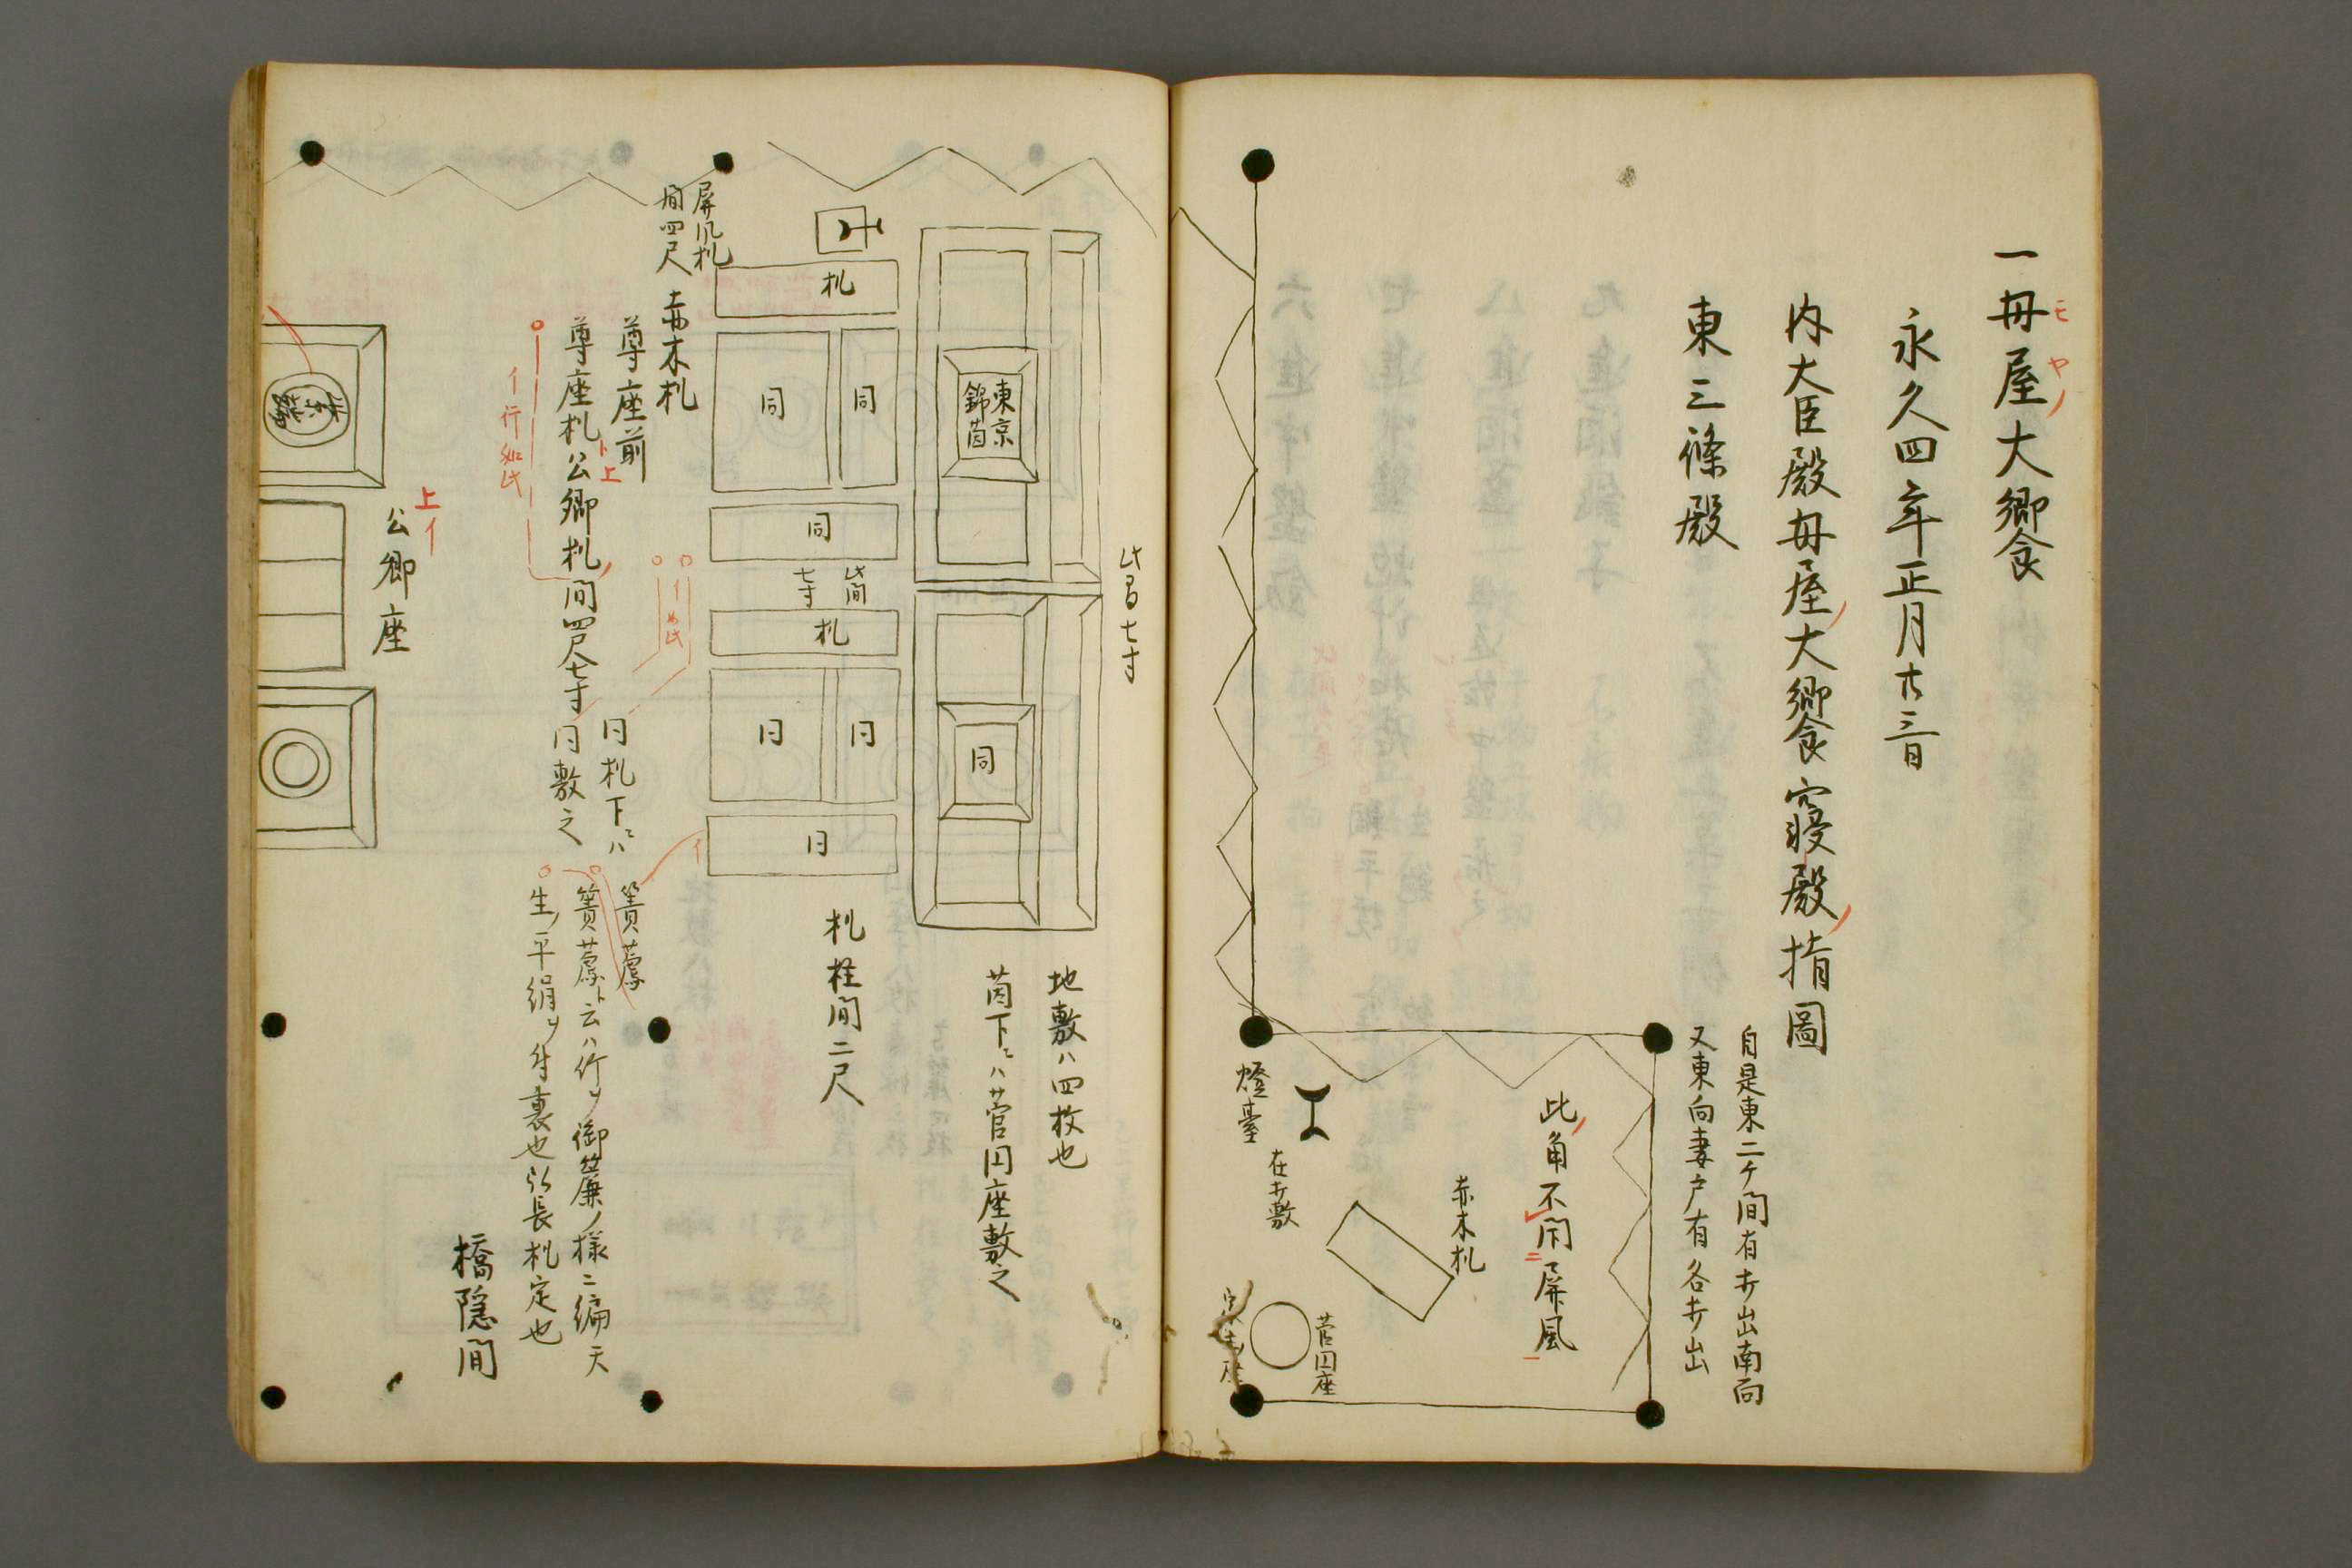 一母屋大饗
モヤノ
永久四年正月廿三日
内大臣殿母屋大饗寝殿指圖
東三條殿
自是東二ケ間有出南面
又東向妻戸有各出
此角不開屏風
赤木机
燈臺
在敷
菅円座
此間七寸
東京
錦茵
同
地敷ハ四枚也
茵下ニハ菅円座敷之
机
同
同
同
此間
七寸
机
同
同
同
机柱間二尺
屏風机
間四尺
赤木机
尊座前
尊座机公卿机間四尺七寸
ト上
イ行如此
イ如此
同机下ニハ
同敷之
イ
簀薦
簀薦ト云ハ竹ヲ御簾ノ様ニ編天
生平絹ヲ付裏也以長机定也
橋隠間
上イ
公卿座